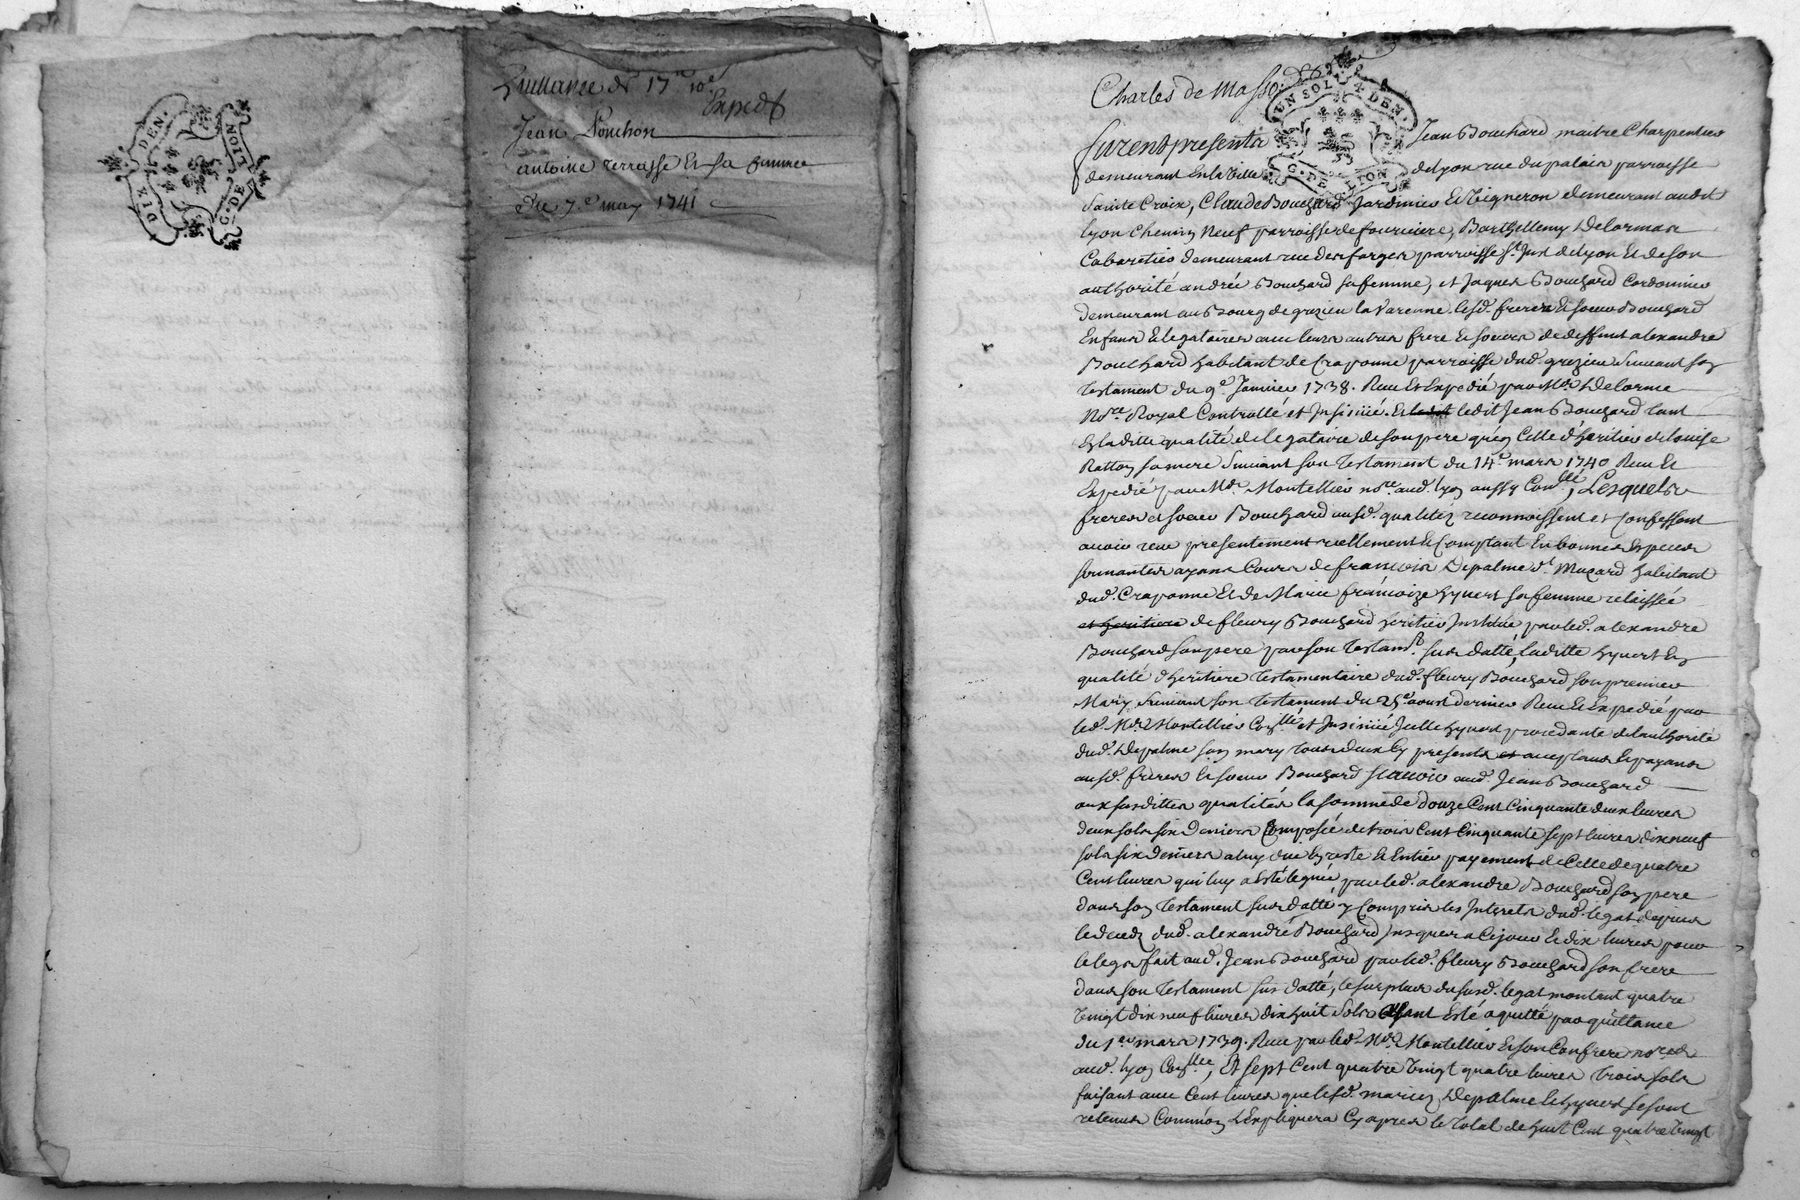 quittance de 17# 10s
Exped
Jean Pouchon
antoine terrasse et sa femme
Du 7e may 1741
DIX DEN.
G. DE LION
Charles de Masso
UN SOL 4 DEN.
G. DE LYON
furent presents Jean Bouchard maitre Charpentier
demeurant en la ville de lyon rue du palais parroisse
Sainte Croix, Claude Bouchard Jardinier et Vigneron demeurant audit
lyon chemin Neuf parroisse de fourviere, Barthellemy Delorme
Cabaretier demeurant rue des farges parroisse St Just de lyon et de son
authorité andrée Bouchard sa femme, et Jaques Bouchard Cordonnier
demeurant au Bourg de grezieu la Varenne. lesd. freres et soeur Bouchard
Enfans et legataires avec leurs autres frere et soeurs de deffunt alexandre
Bouchard habitant de Craponne parroisse dud. grezieu suivant son
testament du 9e Janvier 1738. Receu et Expedié par Me Delorme
Nore Royal Controllé et Insinué. et ledit ledit Jean Bouchard tant
En laditte qualité de legataire de son pere qu'en Celle d'heritier de louise
Ratton sa mere suivant son testament du 14e mars 1740 Receu et
Expedié par Me Montellier nore aud. lyon aussy Conllé, Lesquels
freres et soeur Bouchard ausd. qualitez reconnoissent et Confessent
avoir receu presentement reellement et Comptant En bonnes Especes
sonnantes ayans Cours de francois Depalme dt Mucard habitant
dud. Craponne et de Marie francoize hyvert sa femme relaissée
et heritiere de fleury Bouchard heritier Institué par led. alexandre
Bouchard son pere par son testamt sus datté, laditte hyvert En
qualité d'heritiere testamentaire dud. fleury Bouchard son premier
Mary suivant son testament du 25e aoust dernier Receu et Expedié par
led. Me Montellier Conllé et Insinué Icelle hyvert procedante de l'authorité
dud. Depalme son mary tous deux Cy presents et acceptans et payans
ausd. freres et soeur Bouchard sçavoir aud. Jean Bouchard
aux susdittes qualités la somme de douze Cent Cinquante deux livres
deux sols six deniers Composée de trois Cent Cinquante sept livres dix neuf
sols six deniers a luy due En reste et Entier payement de Celle de quatre
Cent livres qui luy a Esté leguée par led. alexandre Bouchard son pere
dans son testament sus datté y Compris les Interets dud. legat depuis
le deceds dud. alexandre Bouchard Jusques a Ce jour et dix livres pour
le legs fait aud. Jean Bouchard par led. fleury Bouchard son frere
dans son testament sus datté, le surplus du susd. legat montant quatre
Vingt dix neuf livres dix huit sols ayant Esté aquitté par quittance
du 1er mars 1739. Receue par led. Me Montellier et son Confrere nores
aud. lyon Conllée, Et sept Cent quatre Vingt quatre livres trois sols
faisant avec Cent livres que lesd. mariez Depalme et hyvert se sont
retenus Comme Il s'Expliquera Cy apres le total de huit Cent quatre Vingt